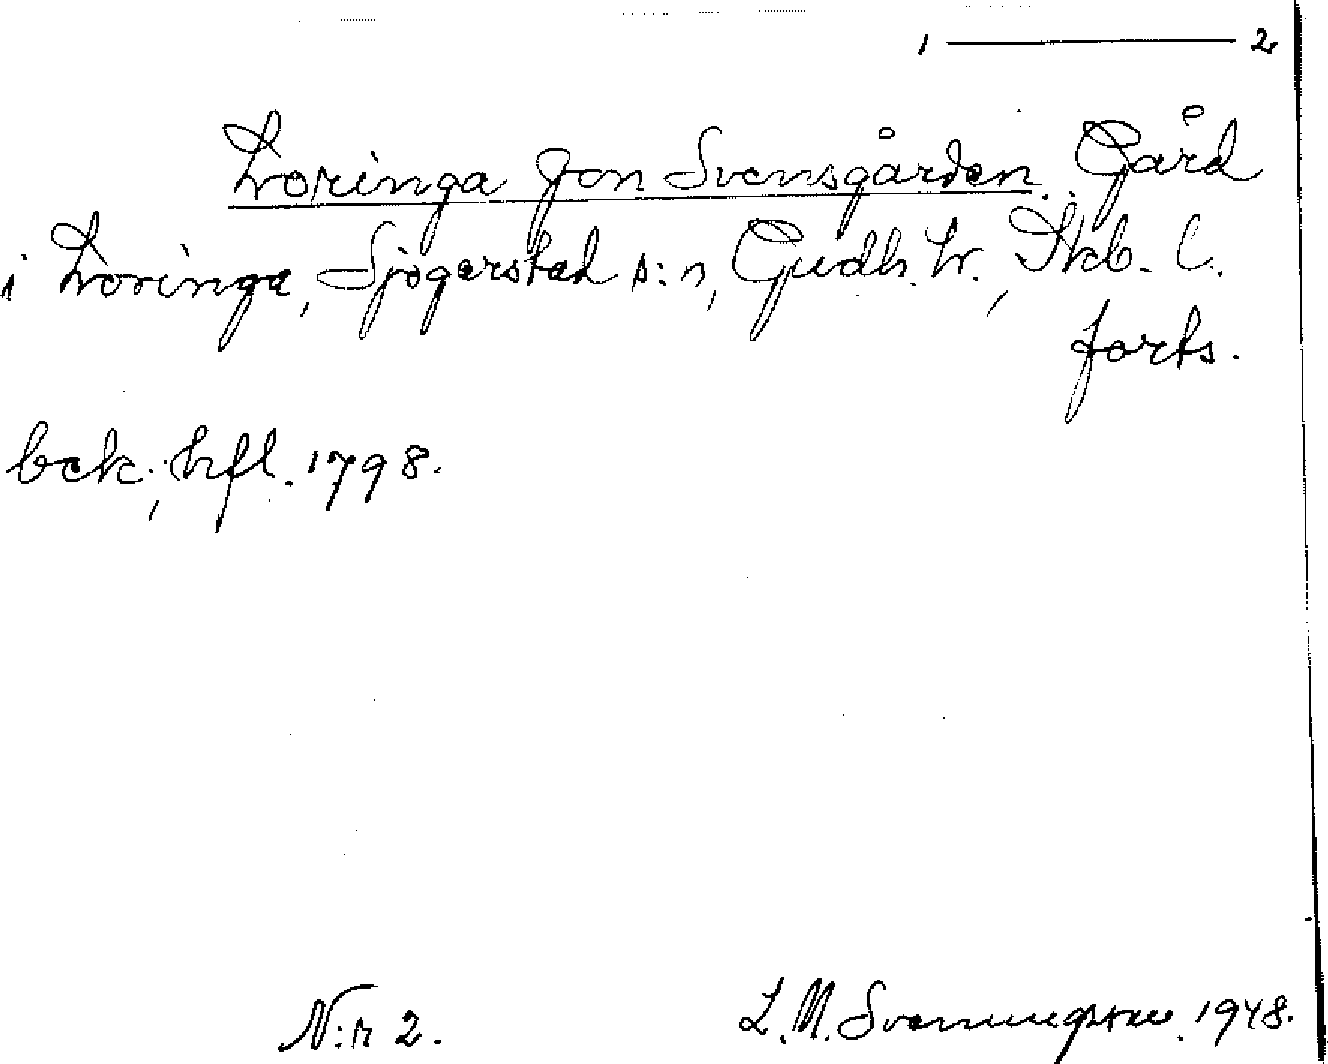 1 ——— 2
Loringa Jon Svensgården. Gård
i Loringa, Sjogerstad s:n, Gudh. hr., Skb. l.
forts.
bek., hfl. 1798.
N:r 2.
L. M. Svenungsson. 1948.